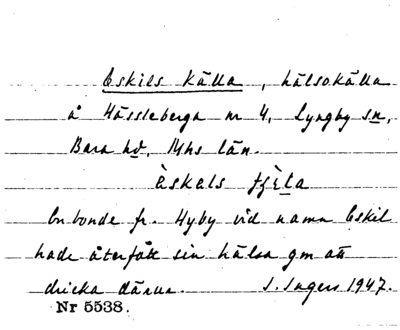 Eskils källa, hälsokälla
å Hässleberga nr 4, Lyngby sn,
Bara hd, Mhs län.
èskəls
En bonde fr. Hyby vid namn Eskil
hade återfått sin hälsa gm att
dricka därur. I. Ingers 1947.
Nr 5538.